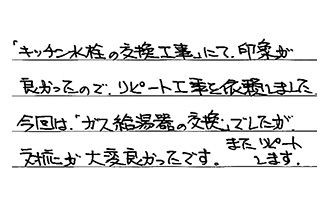 「キッチン水栓の交換工事」にて、印象が
良かったので、リピート工事を依頼しました
今回は、「ガス給湯器の交換」でしたが、
対応が大変良かったです。またリピート
します。